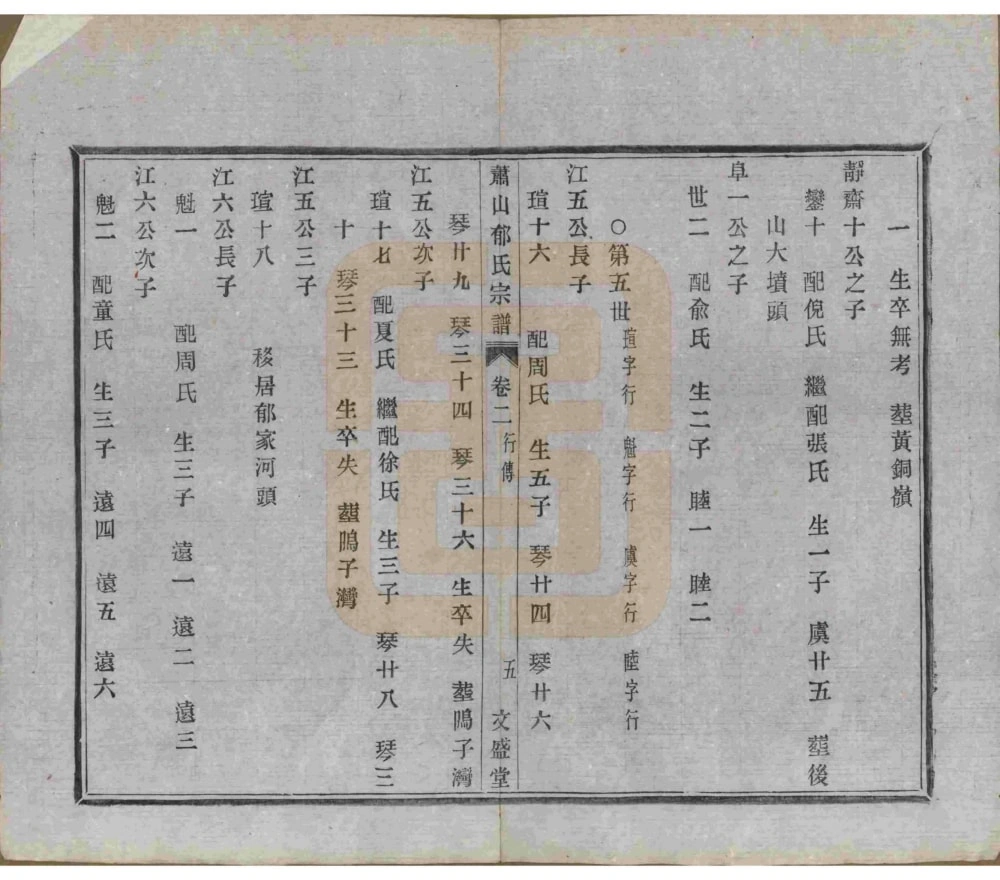 一　生卒無考　塟黃銅嶺
靜齋十公之子
鑾十　配倪氏　繼配張氏　生一子　虞廿五　塟後
山大墳頭
阜一公之子
世二　配俞氏　生二子　睦一　睦二
○第五世　瑄字行　魁字行　虞字行　睦字行
江五公長子
瑄十六　配周氏　生五子　琴廿四　琴廿六
蕭山郁氏宗譜　卷二　行傳　五　文盛堂
琴廿九　琴三十四　琴三十六　生卒失　塟鴫子灣
江五公次子
瑄十七　配夏氏　繼配徐氏　生三子　琴廿八　琴三
十　琴三十三　生卒失　塟鴫子灣
江五公三子
瑄十八　移居郁家河頭
江六公長子
魁一　配周氏　生三子　遠一　遠二　遠三
江六公次子
魁二　配童氏　生三子　遠四　遠五　遠六